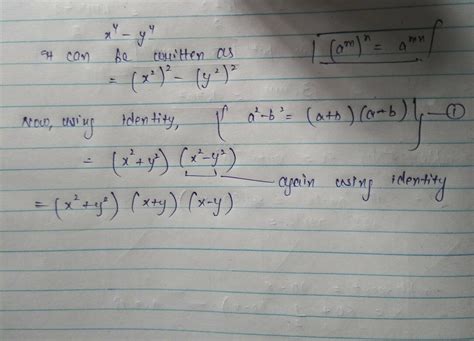 x⁴ - y⁴
It can be written as
(aᵐ)ⁿ = aᵐⁿ
= (x²)² - (y²)²
Now, using identity, a² - b² = (a+b) (a-b) — ①
= (x² + y²) (x² - y²)
again using identity
= (x² + y²) (x+y) (x-y)